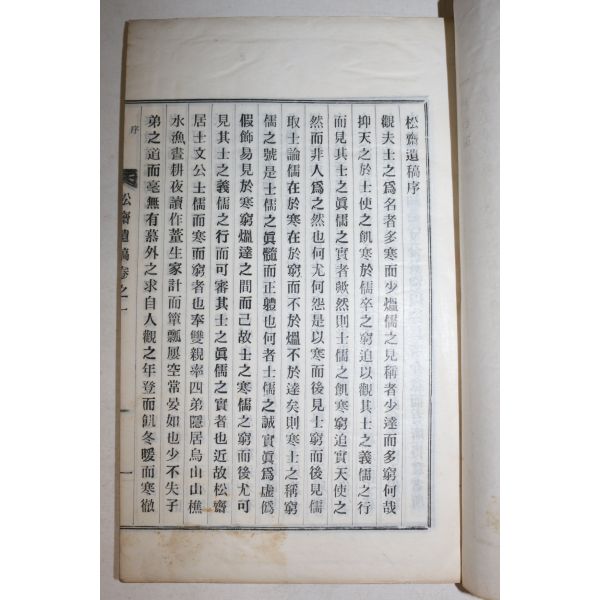 松齋遺稿序
觀夫士之爲名者多寒而少熅儒之見稱者少達而多窮何哉
抑天之於士使之飢寒於儒卒之窮追以觀其士之義儒之行
而見其士之眞儒之實者歟然則士儒之飢寒窮追實天使之
然而非人爲之然也何尤何怨是以寒而後見士窮而後見儒
取士論儒在於寒在於窮而不於熅不於達矣則寒士之稱窮
儒之號是士儒之眞髓而正軆也何者士儒之誠實眞爲虛僞
假飾易見於寒窮熅達之間而己故士之寒儒之窮而後尤可
見其士之義儒之行而可審其士之眞儒之實者也近故松齋
居士文公士儒而寒而窮者也奉雙親率四弟隱居烏山山樵
水漁晝耕夜讀作蕫生家計而簞瓢屢空常晏如也少不失子
弟之道而毫無有慕外之求自人觀之年登而飢冬暖而寒徹
序
松齋遺稿卷之一
一